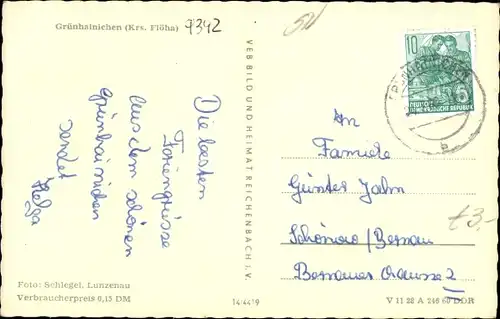 Grünhainichen (Krs. Flöha)
9342
Die besten
Feriengrüsse
aus dem schönen
Grünhainichen
sendet
Helga
Foto: Schlegel, Lunzenau
Verbraucherpreis 0,15 DM
VEB BILD UND HEIMAT REICHENBACH i. V.
14/4419
10
DEUTSCHE
DEMOKRATISCHE REPUBLIK
GRÜNHAINICHEN
b
An
Familie
Günter Jahn
Schönow/Bernau
Bernauer Chaussee 2
t3.-
V 11 28 A 246 60 DDR